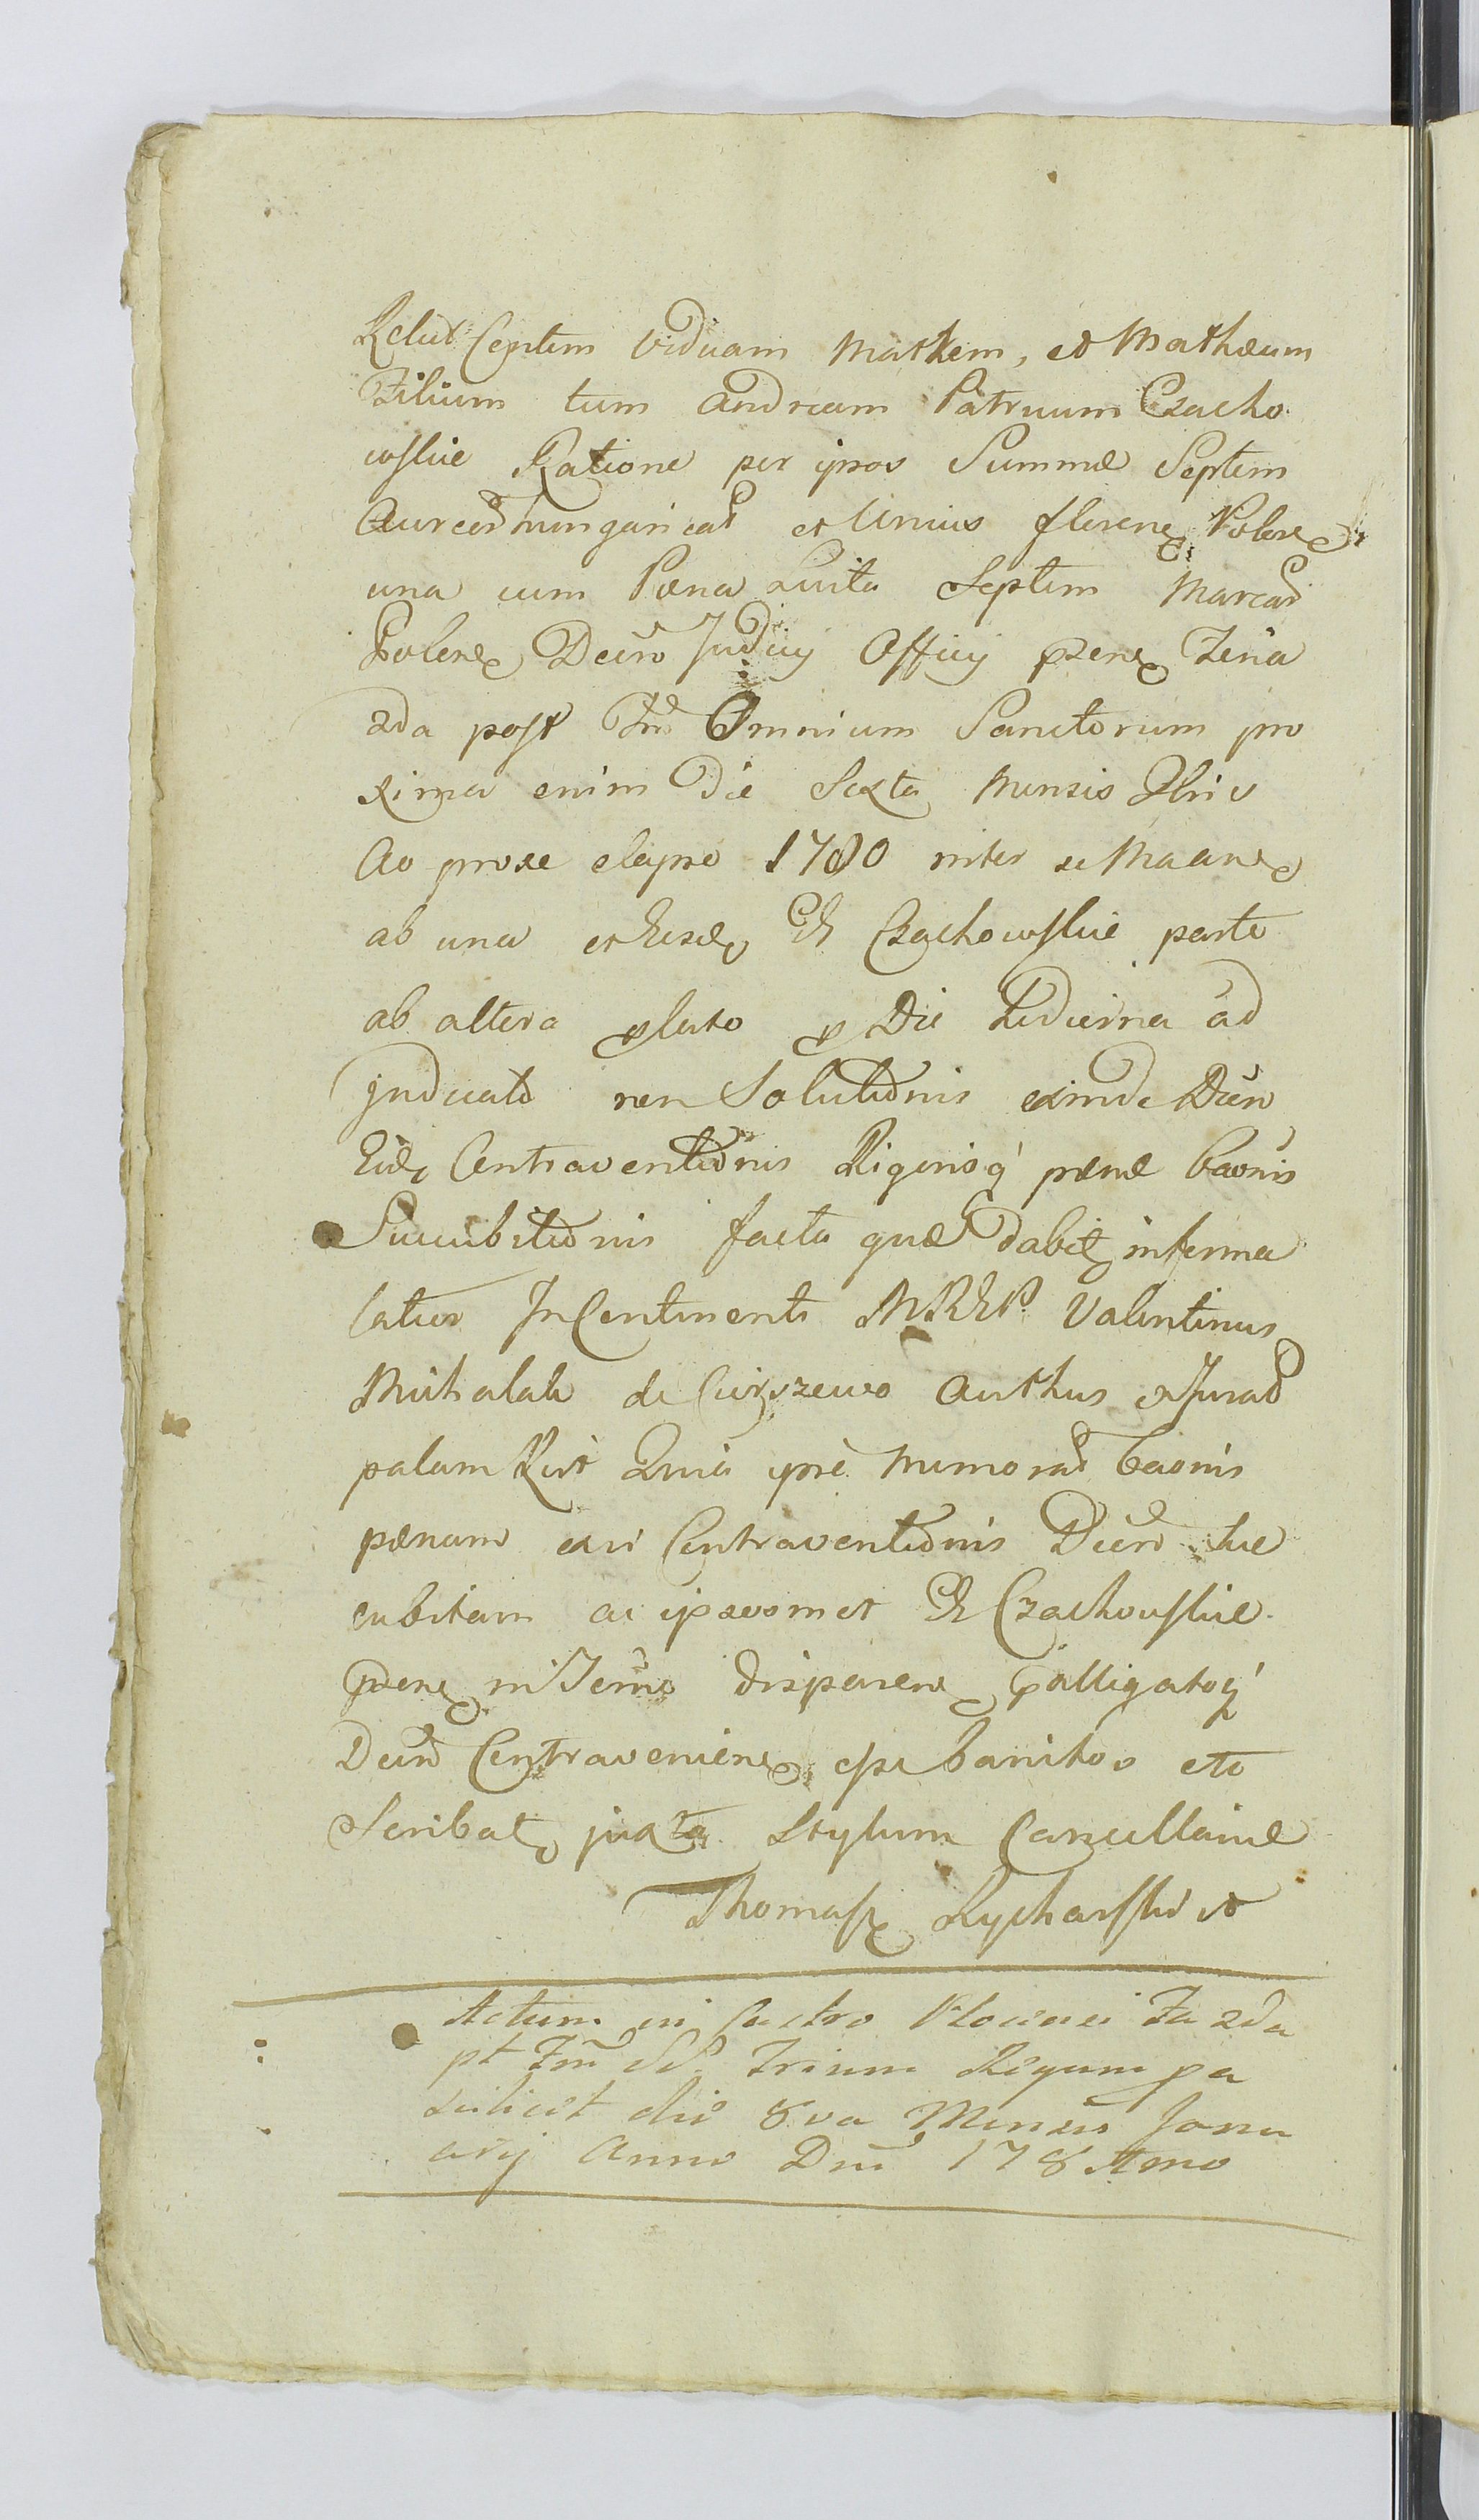 Relict Consortem Viduam Mathem, et Mathæum
Filium tum Andream Patruum Czacho
wskie Ratione per ipsos Summæ Septem
Aureor hungarical et Unius floren Polon
una cum Pæna Luita Septem Marcar
Polon Decro Judicij Officij præsen Feria
2da post Fm Omnium Sanctorum pro
xima enim Die Sexta Mensis 9bris
Ao proxe elapso 1780 inter se Maane
ab una et Eosd GG Czachowskie parte
ab altera lato Die hodierna ad
judicato non Solutionis exinde Decro
Eid Contraventionis Rigorisq pænæ Banis
Succubitionis facta quæ dabit informa
tatur In Continenti Valentinus
Michalak de authus Jurat
palam Rcit Quia ipse memorat Banis
pænam ex Contraventionis Decro suc
cubitam ac ipsosmet GG Czachowskie
præsen in Termo disparen alligatoq
Decro Contravenien esse banitos etc
Scribat juxta Stylum Cancellariæ
Thomasz Rycharski
Actum in Castro Plocensi Fa 2da
pt Fm SS Trium Regum pa
scilicet die 8va Mensis Janu
arij Anno Dni 178